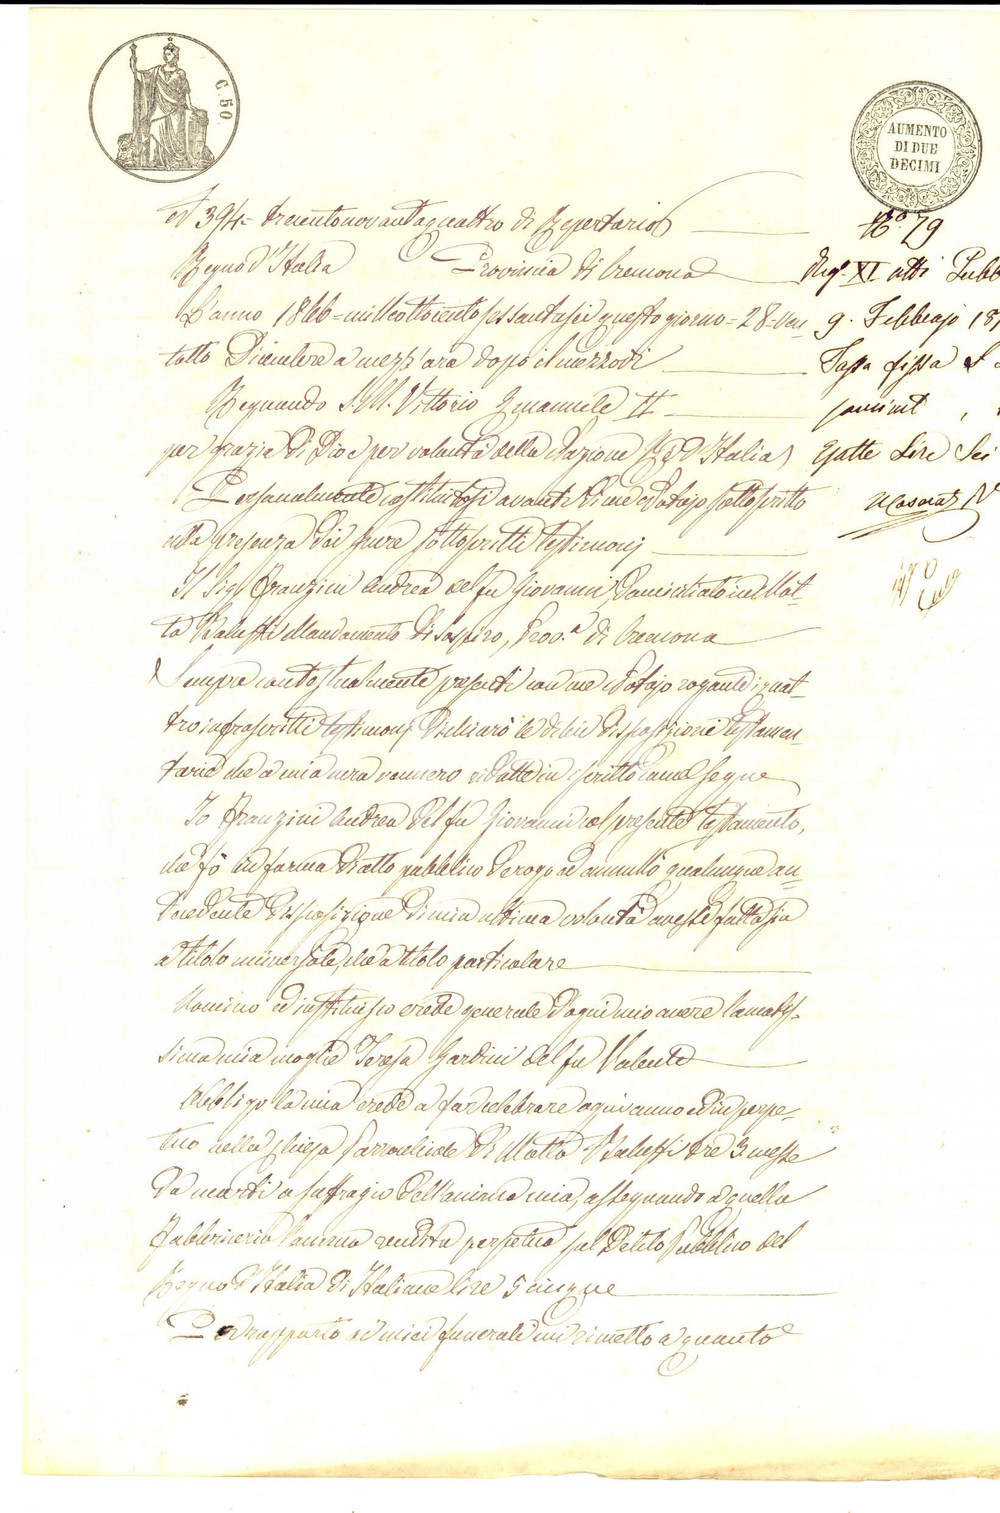 C. 50
AUMENTO
DI DUE
DECIMI
N° 394 = trecentonovantaquattro di Repertorio
Regno d'Italia Provincia di Cremona
L'anno 1866 = milleottocentosessantasei questo giorno = 28 = ven
totto Dicembre a mezz'ora dopo il mezzodì
Regnando S. M. Vittorio Emanuele II
per grazia di Dio e per volontà della Nazione Re d'Italia
Personalmente costituitosi avanti di me Notajo sottoscritto
alla presenza dei pure sottoscritti testimonj
Il Sig. Franzini Andrea del fu Giovanni, domiciliato in Mot-
ta Baluffi Mandamento di Sospiro, Prov.a di Cremona
Sempre contestualmente presenti con me Notajo rogante i quat-
tro infrascritti testimonj dichiarò le di lui disposizioni testamen-
tarie che a mia cura vennero ridotte in iscritto come segue
Io Franzini Andrea del fu Giovanni col presente testamento,
che fò in forma di atto pubblico derogo ed annullo qualunque an-
tecedente disposizione di mia ultima volontà avessi fatta sia
a titolo universale, che a titolo particolare
Nomino ed istituisco erede generale d'ogni mio avere l'amatis-
sima mia moglie Teresa Gardini del fu Valente
Obbligo la mia erede a far celebrare ogni anno ed in perpe-
tuo nella Chiesa Parrocchiale di Motta Baluffi tre 3 messe
da morti a suffragio dell'anima mia, assegnando a quella
Fabbriceria l'annua rendita perpetua sul Debito Pubblico del
Regno d'Italia di Italiane lire 5 cinque
Per rapporto ai miei funerali mi rimetto a quanto
N.° 79
Reg. XI atti Pubb
9. Febbrajo 18
Tassa fissa L
Esatte Lire Sei